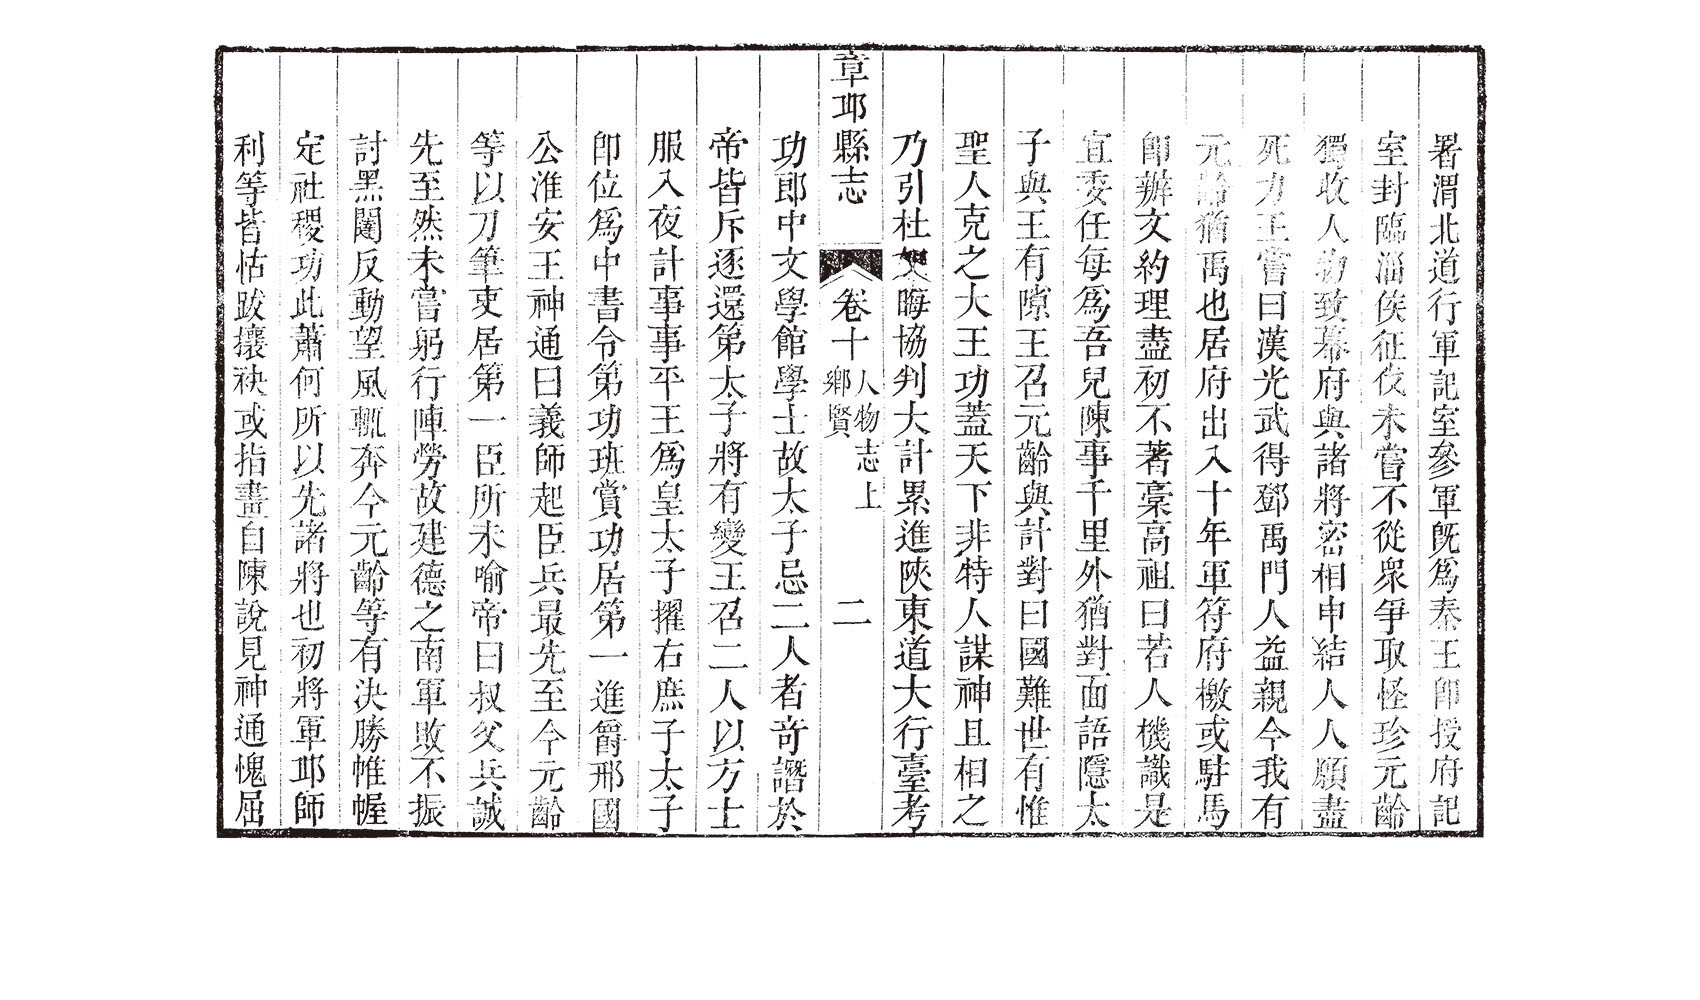 署渭北道行軍記室參軍旣爲秦王卽授府記
室封臨淄侯征伐未嘗不從衆爭取怪珍元齡
獨收人物致幕府與諸將密相申結人人願盡
死力王嘗曰漢光武得鄧禹門人益親今我有
元齡猶禹也居府出入十年軍符府檄或駐馬
卽辦文約理盡初不著稾高祖曰若人機識是
宜委任每爲吾兒陳事千里外猶對面語隱太
子與王有隙王召元齡與計對曰國難世有惟
聖人克之大王功蓋天下非特人謀神且相之
乃引杜如晦協判大計累進陝東道大行臺考
章邱縣志
卷十
人物志上
鄉賢
二
功郎中文學館學士故太子忌二人者竒譖於
帝皆斥逐還第太子將有變王召二人以方士
服入夜計事事平王爲皇太子擢右庶子太子
卽位爲中書令第功班賞功居第一進爵邢國
公淮安王神通曰義師起臣兵最先至今元齡
等以刀筆吏居第一臣所未喻帝曰叔父兵誠
先至然未嘗躬行陣勞故建德之南軍敗不振
討黑闥反動望風輒奔今元齡等有決勝帷幄
定社稷功此蕭何所以先諸將也初將軍邱師
利等皆怙跋攘袂或指畫自陳說見神通愧屈